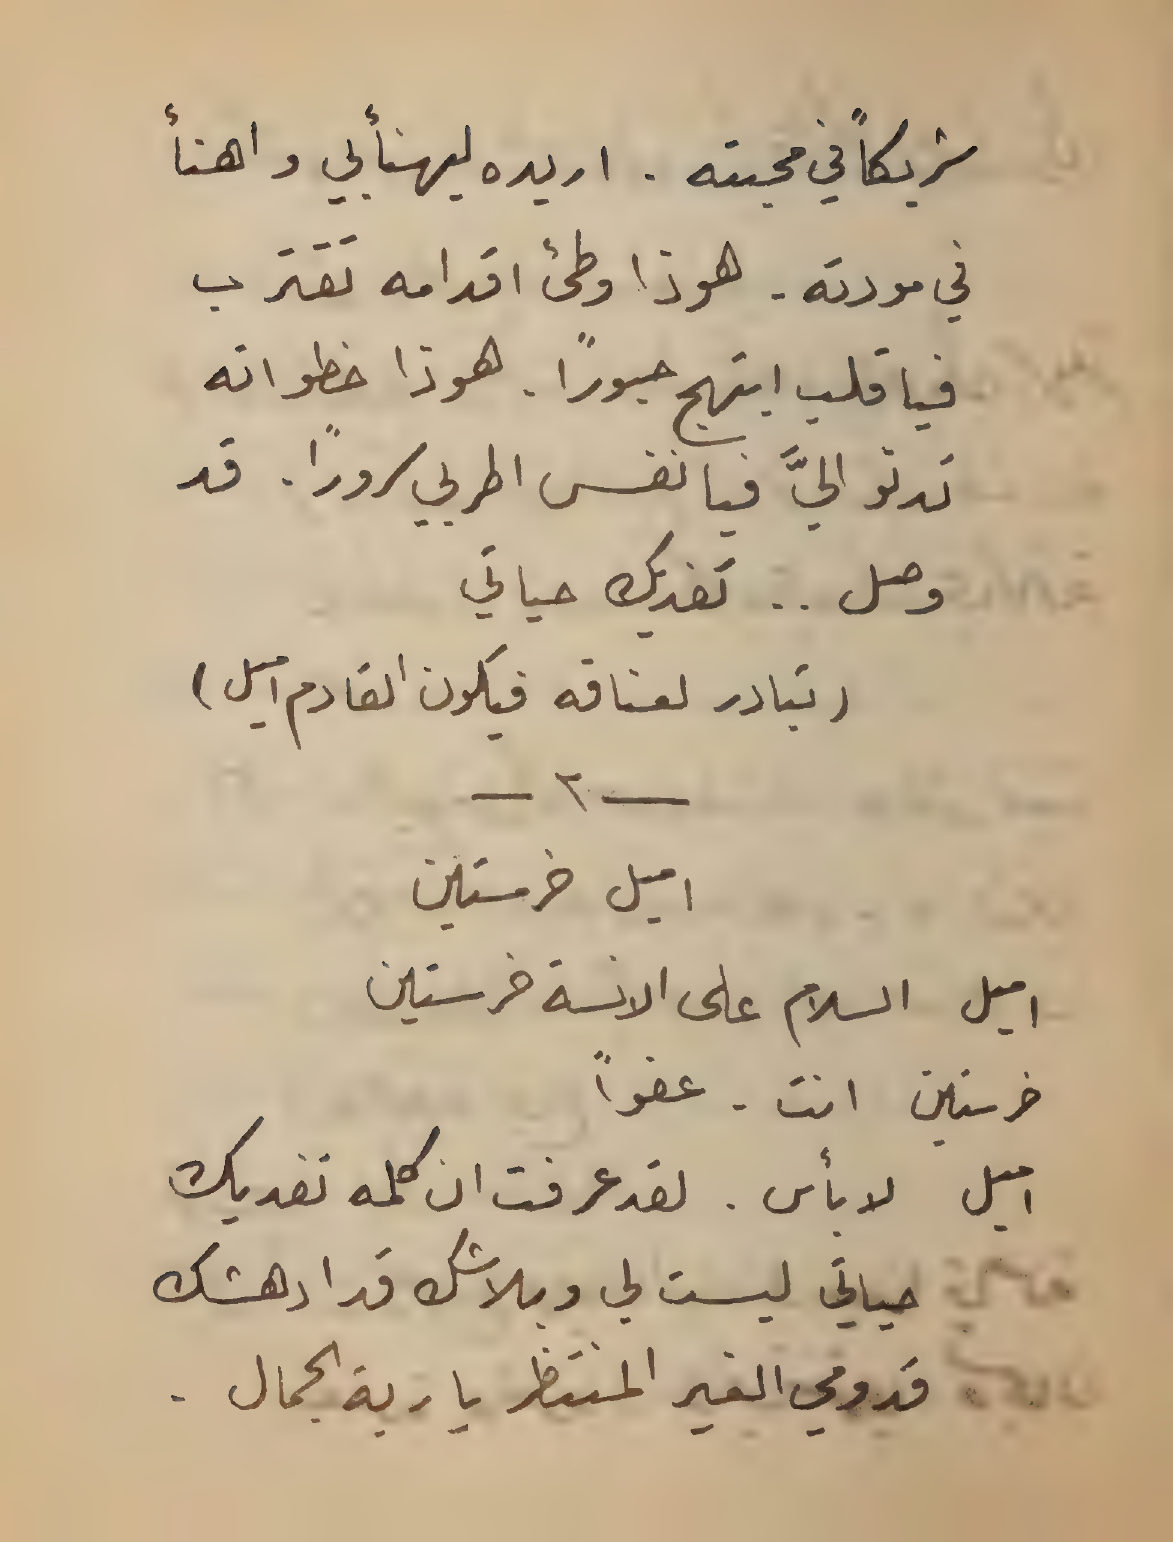 شريكاً في محبته . اريده ليهنأ بي واهنأ
في مودته . هوذا وطئ اقدامه تقترب
فيا قلب ابتهج حبورًا . هوذا خطواته
تدنو اليَّ فيا نفس اطربي سرورًا . قد
وصل .. تفديك حياتي
( تبادر لعناقه فيكون القادم اميل )
— ٢ —
اميل خرستين
اميل السلام على الانسة خرستين
خرستين انت . عفواً
اميل لا بأس . لقد عرفت ان كلمه تفديك
حياتي ليست لي وبلا شك قد ادهشك
قدومي الغير المنتظر يا ربة الجمال .